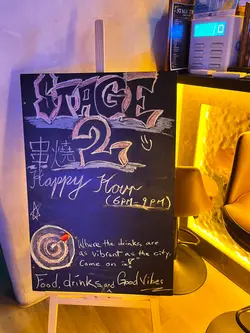 STAGE
2
串燒
Happy Hour
(6PM-9PM)
Where the drinks, are
as vibrant as the city.
Come on in!
Food, drinks, and Good Vibes